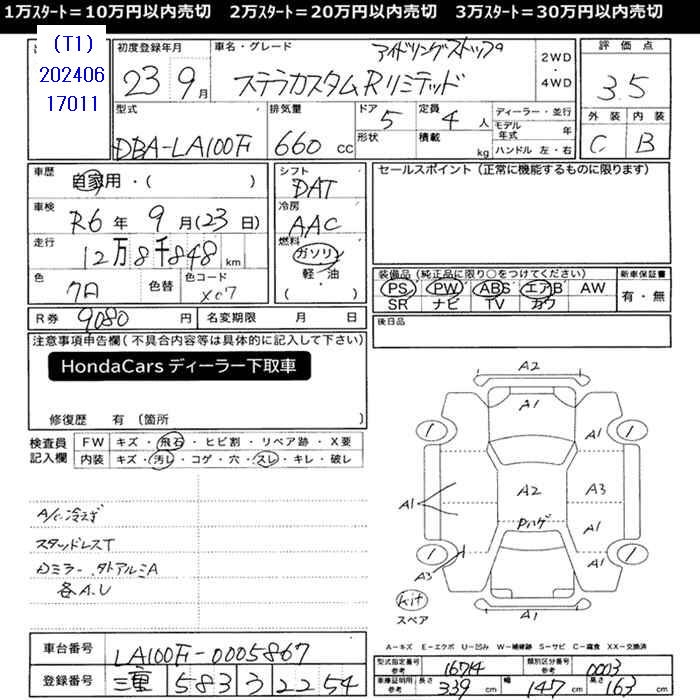 1万ｽﾀｰﾄ＝10万円以内売切　2万ｽﾀｰﾄ＝20万円以内売切　3万ｽﾀｰﾄ＝30万円以内売切
(T1)
202406
17011
初度登録年月
23 9月
車名・グレード
アイドリングストップ
ステラカスタムRリミテッド
2WD
・
4WD
評価点
3.5
型式
DBA-LA100F
排気量
660 CC
ドア
5
形状
定員
4人
積載
kg
ディーラー・並行
モデル年式　年
ハンドル 左・右
外装　内装
C　B
車歴
自家用・(　　)
シフト
DAT
セールスポイント（正常に機能するものに限ります）
車検
R6年 9月(23日)
冷房
AAC
走行
12万8千848km
燃料
ガソリン
軽・油
(　　)
色
7A
色替
色コード
X07
装備品（純正品に限り○をつけてください）
PS PW ABS エアB AW
SR ナビ TV カワ
新車保証書
有・無
R券 9080円
名変期限　月　日
後日品
注意事項申告欄(不具合内容等は具体的に記入して下さい)
HondaCars ディーラー下取車
修復歴　有（箇所　　）
検査員
記入欄
FW キズ・飛石・ヒビ割・リペア跡・X要
内装 キズ・汚レ・コゲ・穴・スレ・キレ・破レ
A/C冷えず
スタッドレスT
Dミラー、タトアルミA
各A.U
A2
A1
1
1
A1
A1
A2
A3
Pハゲ
A1
1
1
A3
A1
kit
スペア
A1
A－キズ　E－エクボ　U－凹み　W－補修跡　S－サビ　C－腐食　XX－交換済
車台番号 LA100F-0005867
登録番号 三重 583 う 2254
型式指定番号
参考
16714
類別区分番号
参考
0003
車庫証明用
参考
長さ 339 cm 幅 147 cm 高さ 163 cm